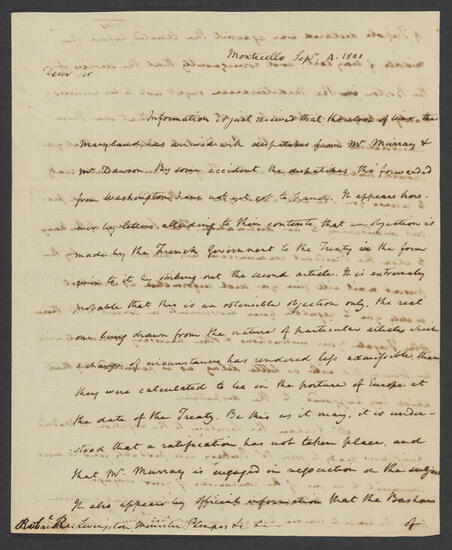 Monticello Sepr. 4. 1801
Dear Sir
Information is just received that the sloop of war, the
Maryland, has arrived with despatches from Mr. Murray &
Mr Dawson. By some accident the despatches tho' forwarded
from Washington have not yet got to hand. It appears how-
ever by letters, attending to their contents, that an objection is
made by the French Government to the Treaty in the form
given to it by striking out the second article. It is extremely
probable that this is an ostensible objection only, the real
one being drawn from the nature of particular articles which
a change of circumstances has rendered less admissible than
they were calculated to be in the posture of Europe at
the date of the Treaty. Be this as it may, it is under-
stood that a ratification has not taken place, and
that Mr. Murray is engaged in negociation on the subject
It also appears by official information that the Bashaw
Robt. R. Livingston Minister Plenipo: &c &c
of